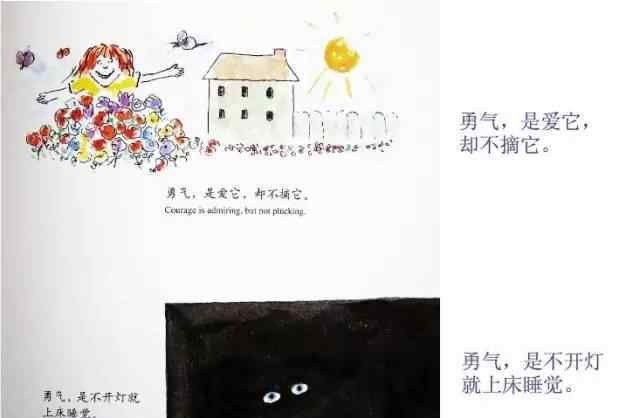 勇气，是爱它，却不摘它。
Courage is admiring, but not plucking.
勇气，是不开灯就
上床睡觉。
勇气，是爱它，
却不摘它。
勇气，是不开灯
就上床睡觉。